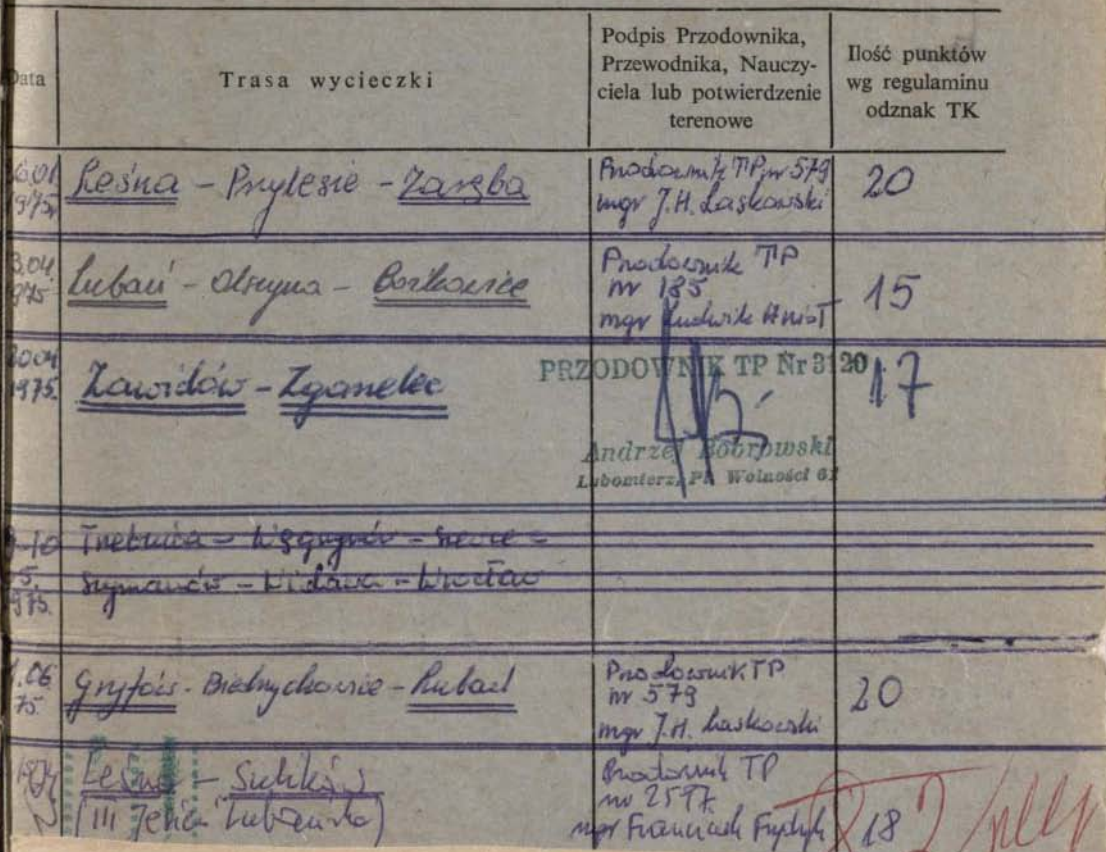 Data
Trasa wycieczki
Podpis Przodownika,
Przewodnika, Nauczy-
ciela lub potwierdzenie
terenowe
Ilość punktów
wg regulaminu
odznak TK
6.01
1975
Leśna - Przylesie - Zaręba
Przodownik TP nr 579
mgr J.H. Laskowski
20
3.04
975
Lubań - Olszyna - Bożkowice
Przodownik TP
nr 185
mgr Ludwik Anioł
15
20.04
1975.
Zawidów - Zgorzelec
PRZODOWNIK TP Nr 3120
Andrzej Bobrowski
Lubomierz, Pl. Wolności 61
17
9-10
5.
975.
Trzebnica - Węgrzynów -
Szymanów - Widawa - Wrocław
1.06
75.
Gryfów - Biedrzychowice - Lubań
Przodownik TP
nr 579
mgr J.H. Laskowski
20
Leśna - Sulików
(III Jesień Lubańska)
Przodownik TP
mgr Franciszek
18